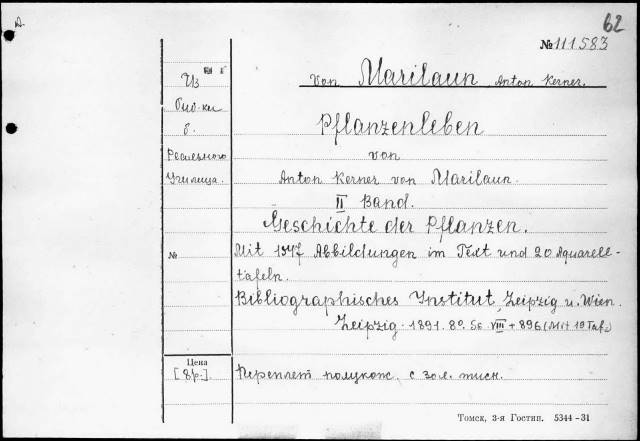 А.
62
№ 111583
von Marilaun, Anton Kerner.
Из
Биб-ки
Реального
Училища.
Pflanzenleben
von
Anton Kerner von Marilaun.
II Band.
Geschichte der Pflanzen.
№
Mit 1547 Abbildungen im Text und 20 Aquarell-
tafeln.
Bibliographisches Institut, Leipzig u. Wien.
Leipzig. 1891. 8º. Se. VIII + 896 (Mit 19 Taf.)
Цена
[8р.].
Переплет полукож. с зол. тисн.
Томск, 3-я Гостип. 5344-31